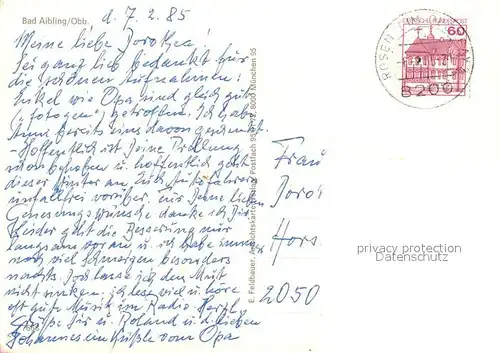 Bad Aibling/Obb.
d. 7. 2. 85
Meine liebe Dorothea!
Sei ganz lieb bedankt für
die schönen Aufnahmen:
Enkel wie Opa sind gleich gut
("fotogen") getroffen. Ich habe
bereits eins davon
- Hoffentlich ist Deine
u. hoffentlich geht
dieser Winter an Euch Autofahrern
unfallfrei vorüber. Für Deine lieben
Genesungswünsche danke ich Dir.
Leider geht die Besserung nur
langsam voran u. ich habe immer
noch viel Schmerzen besonders
nachts. Doch lasse ich den Mut
nicht sinken, ich lese viel u. höre
oft gute Musik im Radio. Herzl.
Grüße Dir u. Roland u. d. lieben
Johannes ein Küßle vom Opa
E. Feldbauer, Ansichtskartenverlag, Postfach 8000 München 95
DEUTSCHE BUNDESPOST
60
ROSENHEIM
8200
Frau
Doro
Hors
2050
privacy protection
Datenschutz